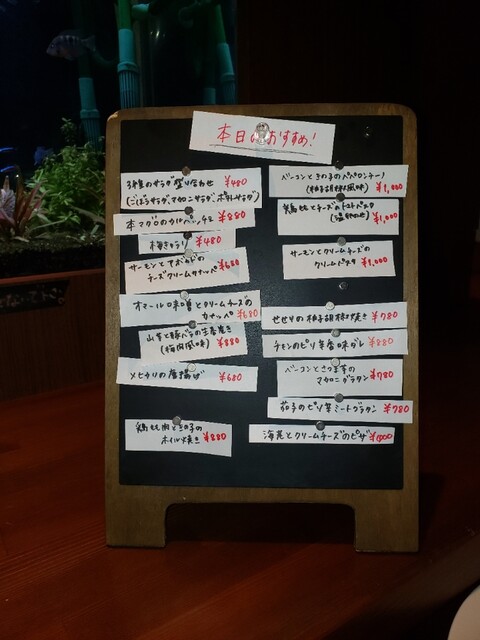 本日のおすすめ!
3種のサラダ盛り合わせ ¥480
(ごぼうサラダ、マカロニサラダ、ポテトサラダ)
本マグロのカルパッチョ ¥880
梅きゅうり ¥480
サーモンとアボカドの
チーズクリームカナッペ ¥680
オマール味噌とクリームチーズの
カナッペ ¥680
山芋と豚バラの生姜焼き
(梅肉風味) ¥880
メヒカリの唐揚げ ¥680
鶏もも肉ときの子の
ホイル焼き ¥880
ベーコンときの子のペペロンチーノ
(柚子胡椒風味) ¥1,000
鶏ももとチーズのトマトパスタ
¥1,000
サーモンとクリームチーズの
クリームパスタ ¥1,000
せせりの柚子胡椒焼き ¥780
チキンのピリ辛香味ダレ ¥880
ベーコンとさつま芋の
マカロニグラタン ¥780
茄子のピリ辛ミートグラタン ¥780
海老とクリームチーズのピザ ¥1,000